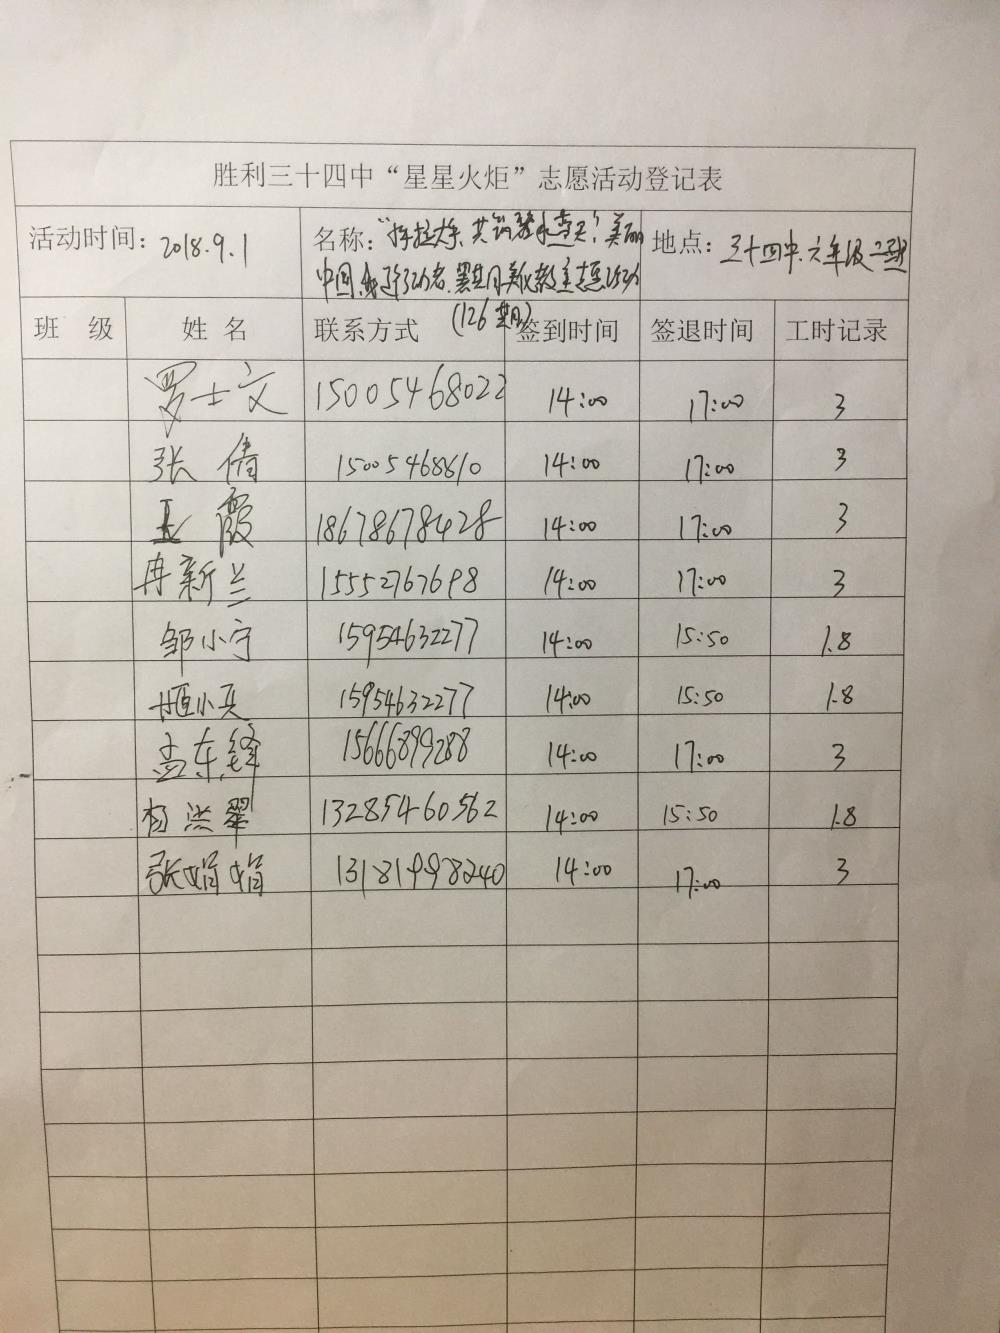 胜利三十四中“星星火炬”志愿活动登记表
活动时间：2018.9.1 名称： 地点：三十四中.六年级
中国,我是行动者.暑期美化教室志愿活动
(126期)
班 级 姓 名 联系方式 签到时间 签退时间 工时记录
罗士文 15005468022 14:00 17:00 3
张倩 15005468610 14:00 17:00 3
王霞 18678678428 14:00 17:00 3
冉新兰 15552767698 14:00 17:00 3
邹小宁 15954632277 14:00 15:50 1.8
小 15954632277 14:00 15:50 1.8
孟东锋 15666899288 14:00 17:00 3
杨洪翠 13285460562 14:00 15:50 1.8
张娟娟 13181998240 14:00 17:00 3